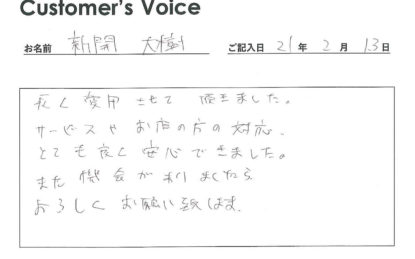 Customer's Voice
お名前 新開 大樹 ご記入日 21年2月13日
長く愛用させて頂きました。
サービスやお店の方の対応、
とても良く安心できました。
また機会が有りましたら
よろしくお願い致します。